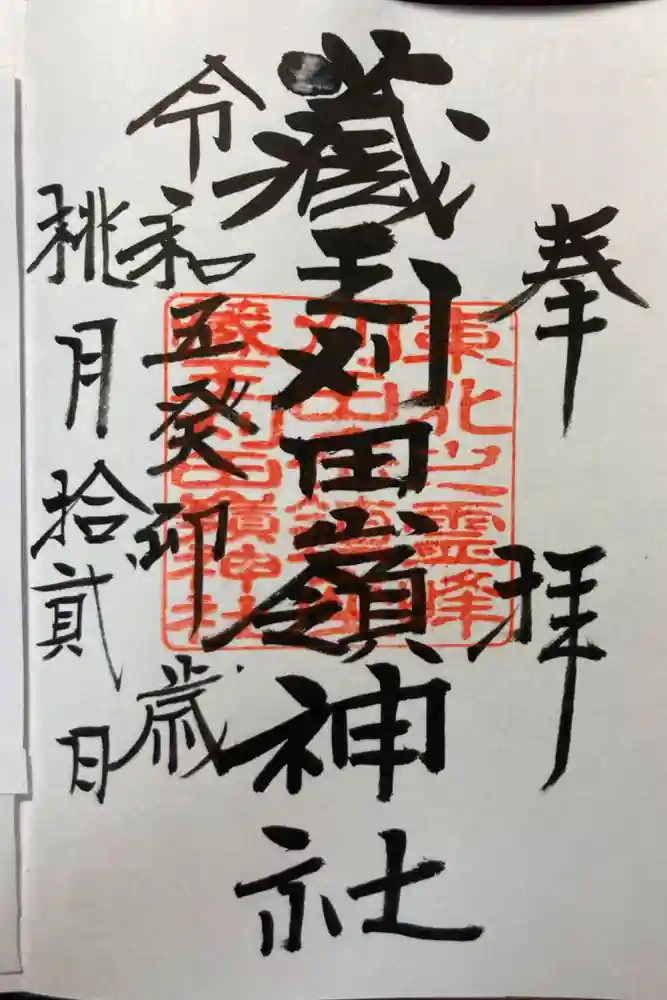 奉拝
藏王刈田嶺神社
令和五癸卯歳
桃月拾貳日
東北之霊峰
蔵王刈田嶺神社